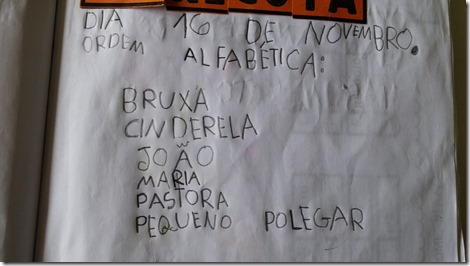 DIA 16 DE NOVEMBRO.
ORDEM ALFABÉTICA:
BRUXA
CINDERELA
JOÃO
MARIA
PASTORA
PEQUENO POLEGAR